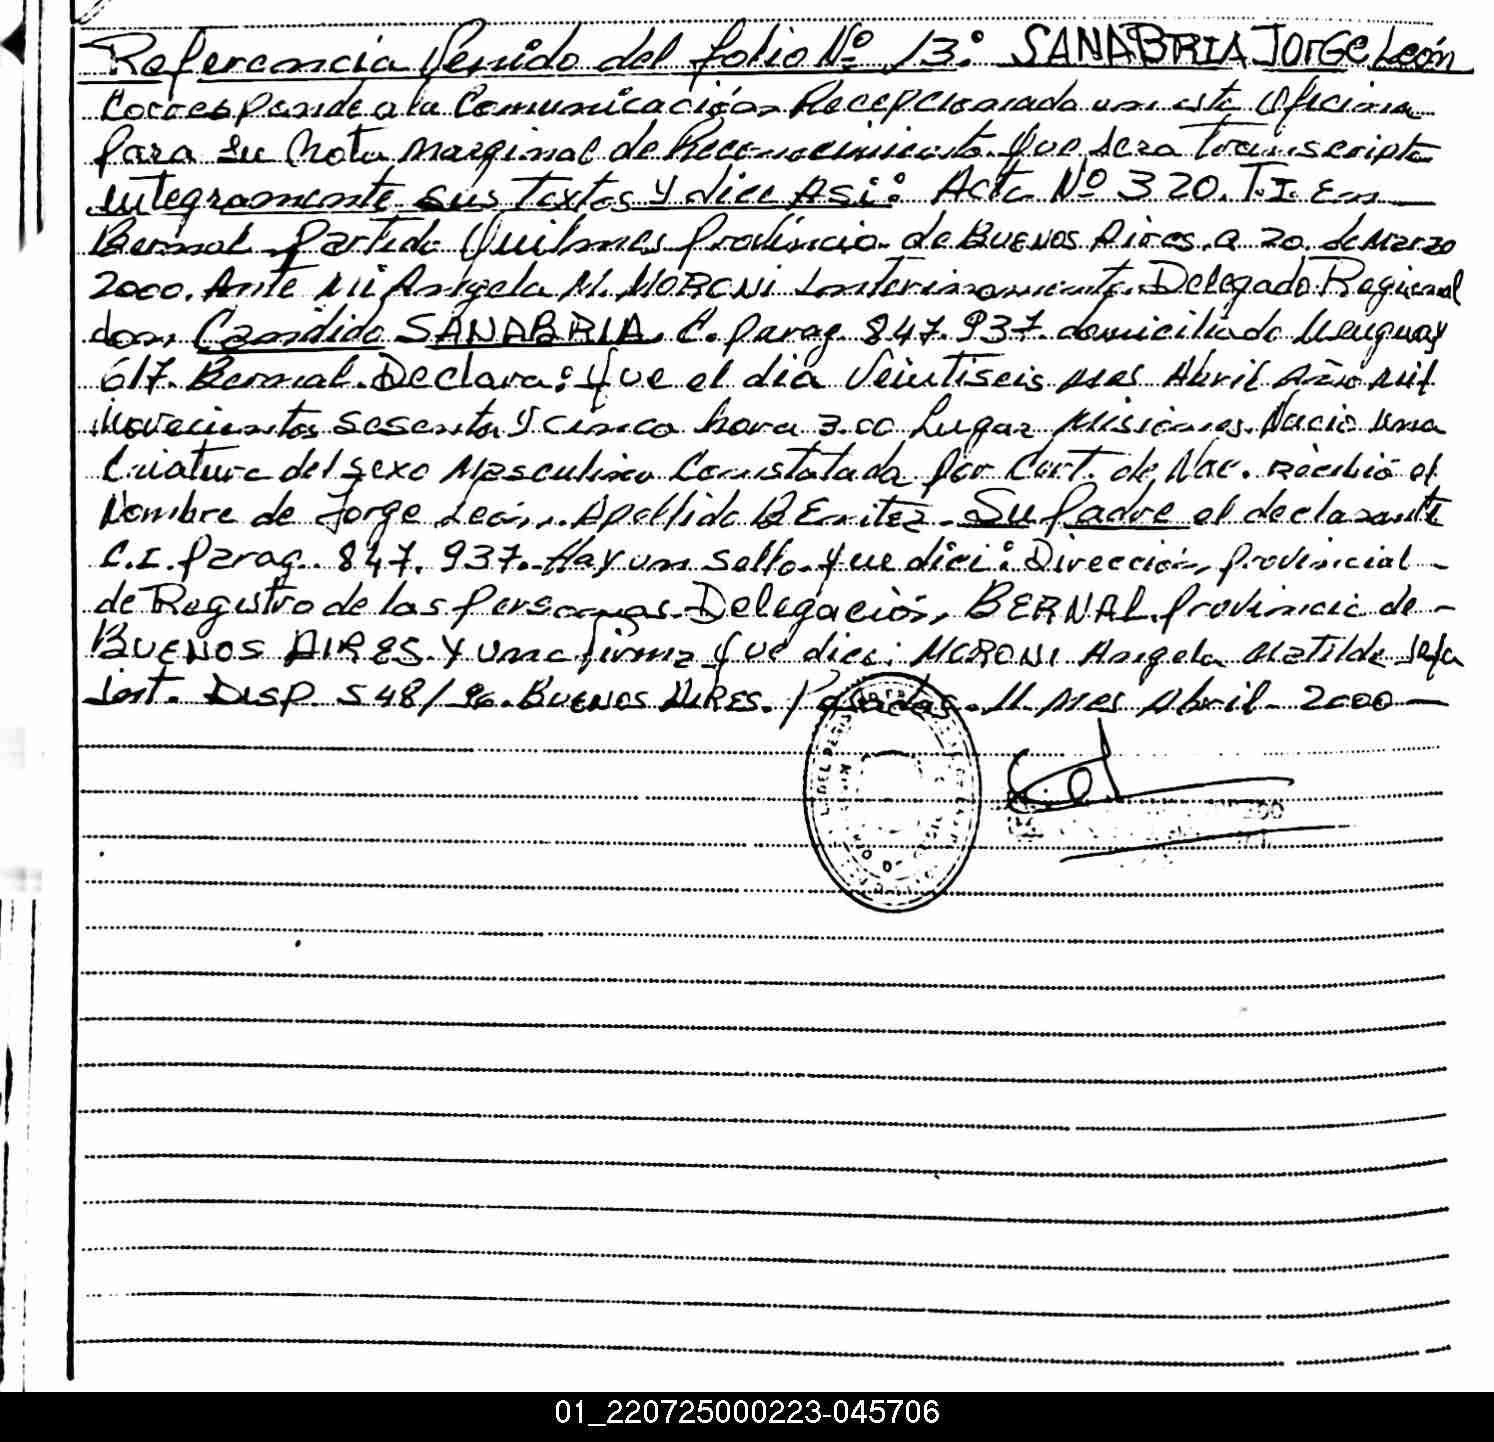 Referencia Venido del folio Nº 13: SANABRIA Jorge León
Corresponde a la Comunicación Recepcionada en esta Oficina
para su Nota Marginal de Reconocimiento. Que sera Transcripto
integramente sus Textos y dice Asi: Acta Nº 320. T.I. En
Bernal Partido Quilmes Provincia de Buenos Aires, a 20 de Marzo
2000. Ante Mi Angela M. MORONI Interinamente Delegado Regional
don Candido SANABRIA C. parag. 847.937. domiciliado Uruguay
617. Bernal. Declara: Que el dia Veintiseis Mes Abril Año Mil
Novecientos Sesenta y Cinco hora 3.00 Lugar Misiones. Nacio una
Criatura del sexo Masculino Constatada por Cert. de Nac. recibió el
Nombre de Jorge León, Apellido BEnitez. Su Padre el declarante
C.I. Parag. 847.937. Hay un sello que dici: Dirección, Provincial
de Registro de las Personas Delegación, BERNAL. Provincia de
BUENOS AIRES. Y una firma que dice: MORONI Angela Matilde Jefa
Int. DISP. 548/96. Buenos AIRES. Posadas. 11 Mes Abril 2000
01_220725000223-045706